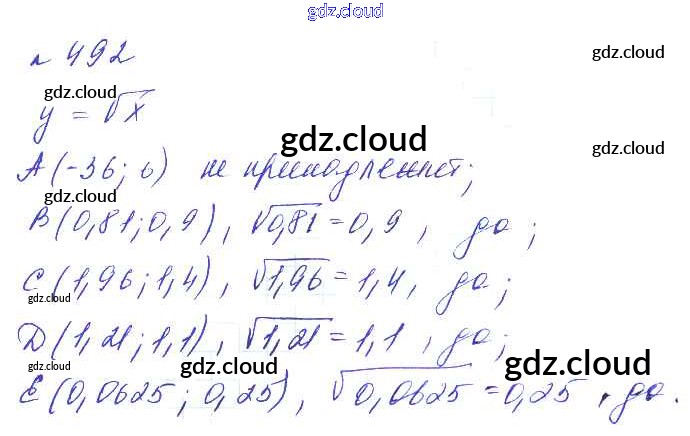 gdz.cloud
№ 492 gdz.cloud
gdz.cloud
y = √x
gdz.cloud gdz.cloud
A(-36; 6) не принадлежит;
gdz.cloud
B(0,81; 0,9), √0,81 = 0,9, да;
C(1,96; 1,4), √1,96 = 1,4, да;
gdz.cloud
D(1,21; 1,1), √1,21 = 1,1, да;
gdz.cloud gdz.cloud gdz.cloud
E(0,0625; 0,25), √0,0625 = 0,25, да.